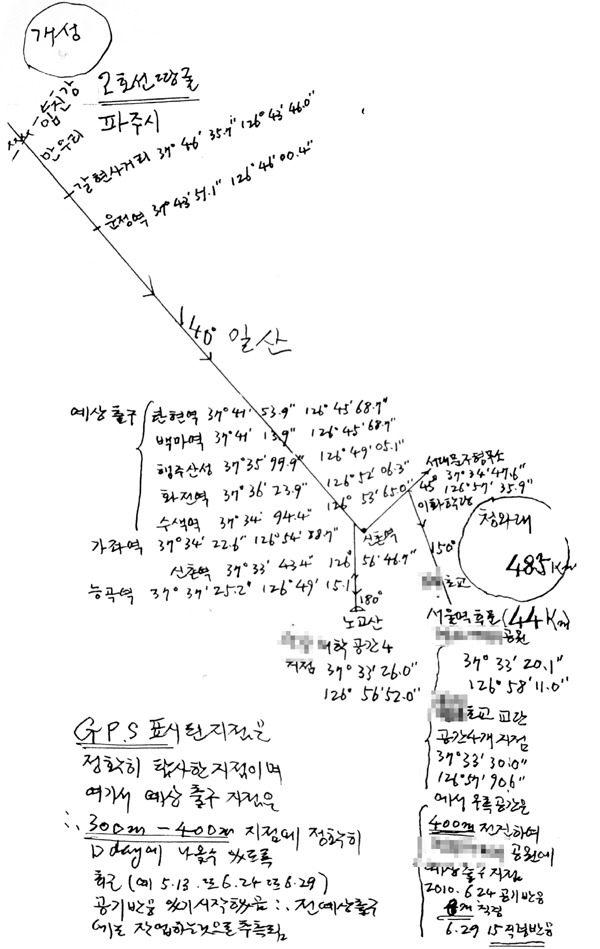 개성
임진강
2호선땅굴
파주시
만우리
갈현사거리 37° 46' 35.7" 126° 43' 46.0"
운정역 37° 43' 51.1" 126° 46' 00.4"
40° 일산
예상출구
탄현역 37° 41' 53.9" 126° 45' 68.7"
백마역 37° 41' 13.9" 126° 45' 68.7"
행주산성 37° 35' 99.9" 126° 49' 05.1"
화전역 37° 36' 23.9" 126° 52' 06.3"
수색역 37° 34' 94.4" 126° 53' 65.0"
가좌역 37° 34' 22.6" 126° 54' 88.7"
신촌역 37° 33' 43.4" 126° 56' 46.7"
능곡역 37° 37' 25.2" 126° 49' 15.1"
신촌역
180°
노고산
대학 공간 4
지점 37° 33' 26.0"
126° 56' 52.0"
서대문구형무소
37° 34' 47.6"
45° 126° 57' 35.9"
이화학당
청와대
485Km
150°
초교
서울역 후문 (44Km)
공원
37° 33' 20.1"
126° 58' 11.0"
초교 교단
공간4개 지점
37° 33' 30.0"
126° 57' 90.6"
에서 우측공간은
400m 전진하여
공원에
예상출구지점
2010. 6. 24 공기반응
직경
6.29 15 직경반응
G.P.S 표시된지점은
정확히 탐사한 지점이며
여기서 예상출구 지점은
∴ 300m - 400m 지점에 정확히
D day에 나올수 있도록
최근 (예 5.13. 또 6.24 또 6.29)
공기반응 있기시작했음 ∴ 전예상출구
에는 작업하는것으로 추측됨